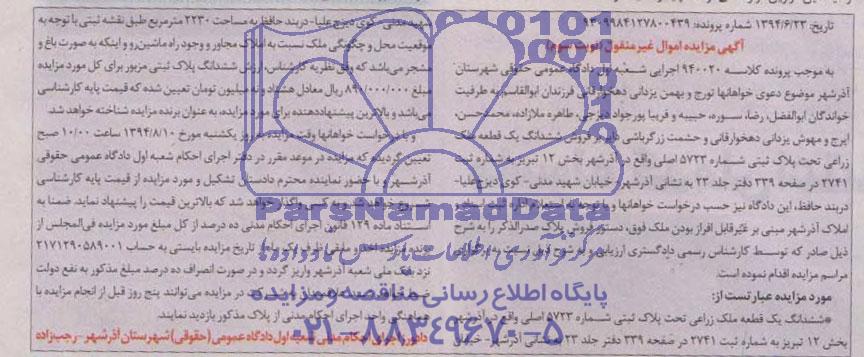 تاریخ: ۱۳۹۴/۶/۲۳ شماره پرونده: ۹۳۰۹۹۸۴۱۲۷۸۰۰۴۳۹
آگهی مزایده اموال غیرمنقول (نوبت سوم)
به موجب پرونده کلاسه ۹۴۰۰۲۰ اجرایی شعبه اول دادگاه عمومی حقوقی شهرستان
آذرشهر موضوع دعوی خواهانها تورج و بهمن یزدانی دهخوارقانی فرزندان ابوالقاسم به طرفیت
خواندگان ابوالفضل، رضا، سوره، حبیبه و فریبا پورجواد دیزجی، طاهره ملازاده، محمدحسن،
ایرج و مهوش یزدانی دهخوارقانی و حشمت زرگرباشی دایر بر فروش ششدانگ یک قطعه ملک
زراعی تحت پلاک ثبتی شماره ۵۷۲۳ اصلی واقع در آذرشهر بخش ۱۲ تبریز به شماره ثبت
۲۷۴۱ در صفحه ۳۳۹ دفتر جلد ۲۳ به نشانی آذرشهر خیابان شهید مدنی- کوی دیزج علیا-
دربند حافظ، این دادگاه نیز حسب درخواست خواهانها و با توجه به استعلام اداره ثبت اسناد و
املاک آذرشهر مبنی بر غیرقابل افراز بودن ملک فوق، دستور فروش پلاک صدرالذکر را به شرح
ذیل صادر که توسط کارشناس رسمی دادگستری ارزیابی و به شرح ذیل نسبت به برگزاری
مراسم مزایده اقدام نموده است.
مورد مزایده عبارتست از:
*ششدانگ یک قطعه ملک زراعی تحت پلاک ثبتی شماره ۵۷۲۳ اصلی واقع در آذرشهر
بخش ۱۲ تبریز به شماره ثبت ۲۷۴۱ در صفحه ۳۳۹ دفتر جلد ۲۳ به نشانی آذرشهر- خیابان
شهید مدنی- کوی دیزج علیا- دربند حافظ به مساحت ۲۲۳۰ مترمربع طبق نقشه ثبتی با توجه به
موقعیت محل و چگونگی ملک نسبت به املاک مجاور و وجود راه ماشین‌رو و اینکه به صورت باغ و
مشجر می‌باشد که وفق نظریه کارشناس، ارزش ششدانگ پلاک ثبتی مزبور برای کل مورد مزایده
مبلغ ۸۹۰/۰۰۰/۰۰۰ ریال معادل هشتاد و نه میلیون تومان تعیین شده که قیمت پایه کارشناسی
می‌باشد و بالاترین پیشنهاددهنده برای مورد مزایده، به عنوان برنده مزایده شناخته خواهد شد.
و بنا به درخواست خواهانها وقت مزایده به روز یکشنبه مورخ ۱۳۹۴/۸/۱۰ ساعت ۱۰/۰۰ صبح
تعیین گردیده که مزایده در موعد مقرر در دفتر اجرای احکام شعبه اول دادگاه عمومی حقوقی
آذرشهر و با حضور نماینده محترم دادستان تشکیل و مورد مزایده از قیمت پایه کارشناسی
شروع خواهد شد و به کسی واگذار خواهد شد که بالاترین قیمت را پیشنهاد نماید. ضمنا به
استناد ماده ۱۲۹ قانون اجرای احکام مدنی ده درصد از کل مبلغ مورد مزایده فی‌المجلس از
برنده مزایده اخذ و مابقی ظرف یک ماه از تاریخ مزایده بایستی به حساب ۲۱۷۱۲۹۰۵۸۹۰۰۱
نزد بانک ملی شعبه آذرشهر واریز گردد و در صورت انصراف ده درصد مبلغ مذکور به نفع دولت
در مزایده می‌توانند پنج روز قبل از انجام مزایده با
هماهنگی واحد اجرای احکام مدنی از پلاک مذکور بازدید نمایند.
دادورز اجرای احکام مدنی شعبه اول دادگاه عمومی (حقوقی) شهرستان آذرشهر – رجب‌زاده
ParsNamadData
پایگاه اطلاع رسانی مناقصه و مزایده
۰۲۱-۸۸۳۴۹۶۷۰-۵